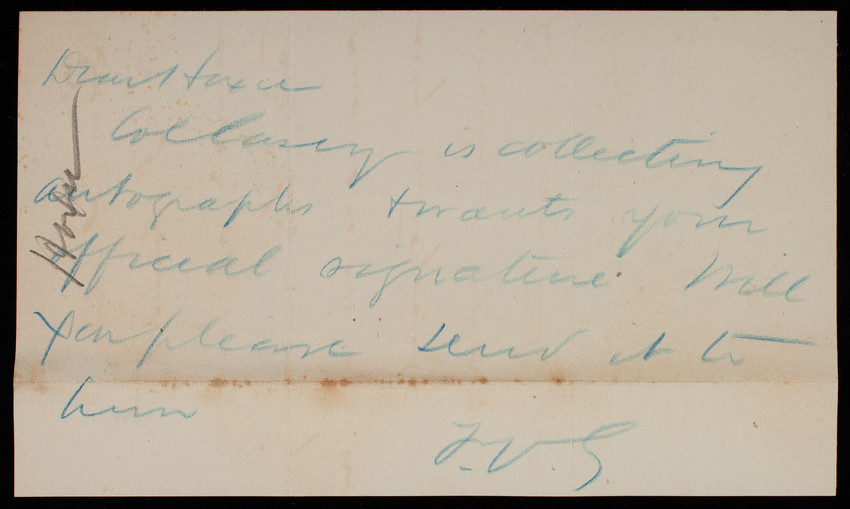 Dear Hoxie
Col Casey is collecting
autographs & wants your
official signature. Will
you please send it to
him
F. V. G.
Hoxie